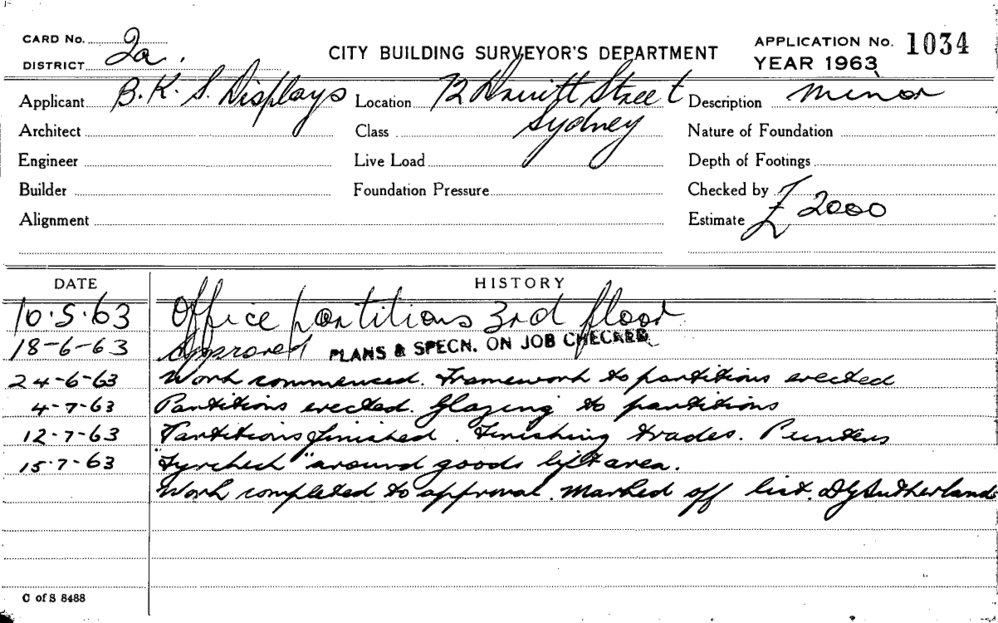 CARD No. 2a.
DISTRICT
CITY BUILDING SURVEYOR'S DEPARTMENT
APPLICATION No. 1034
YEAR 1963
Applicant B.K.S. Displays Location 72 Street Description minor
Architect Class Sydney Nature of Foundation
Engineer Live Load Depth of Footings
Builder Foundation Pressure Checked by
Alignment Estimate £ 2000
DATE HISTORY
10.5.63 Office partitions 3rd floor
18-6-63 Approved PLANS & SPECN. ON JOB CHECKED.
24-6-63 Work commenced. Framework to partitions erected
4-7-63 Partitions erected. Glazing to partitions
12-7-63 Partitions finished. Finishing trades.
15.7-63 around goods lift area.
Work completed to approval. Marked off list. DG Sutherland
C of S 8488